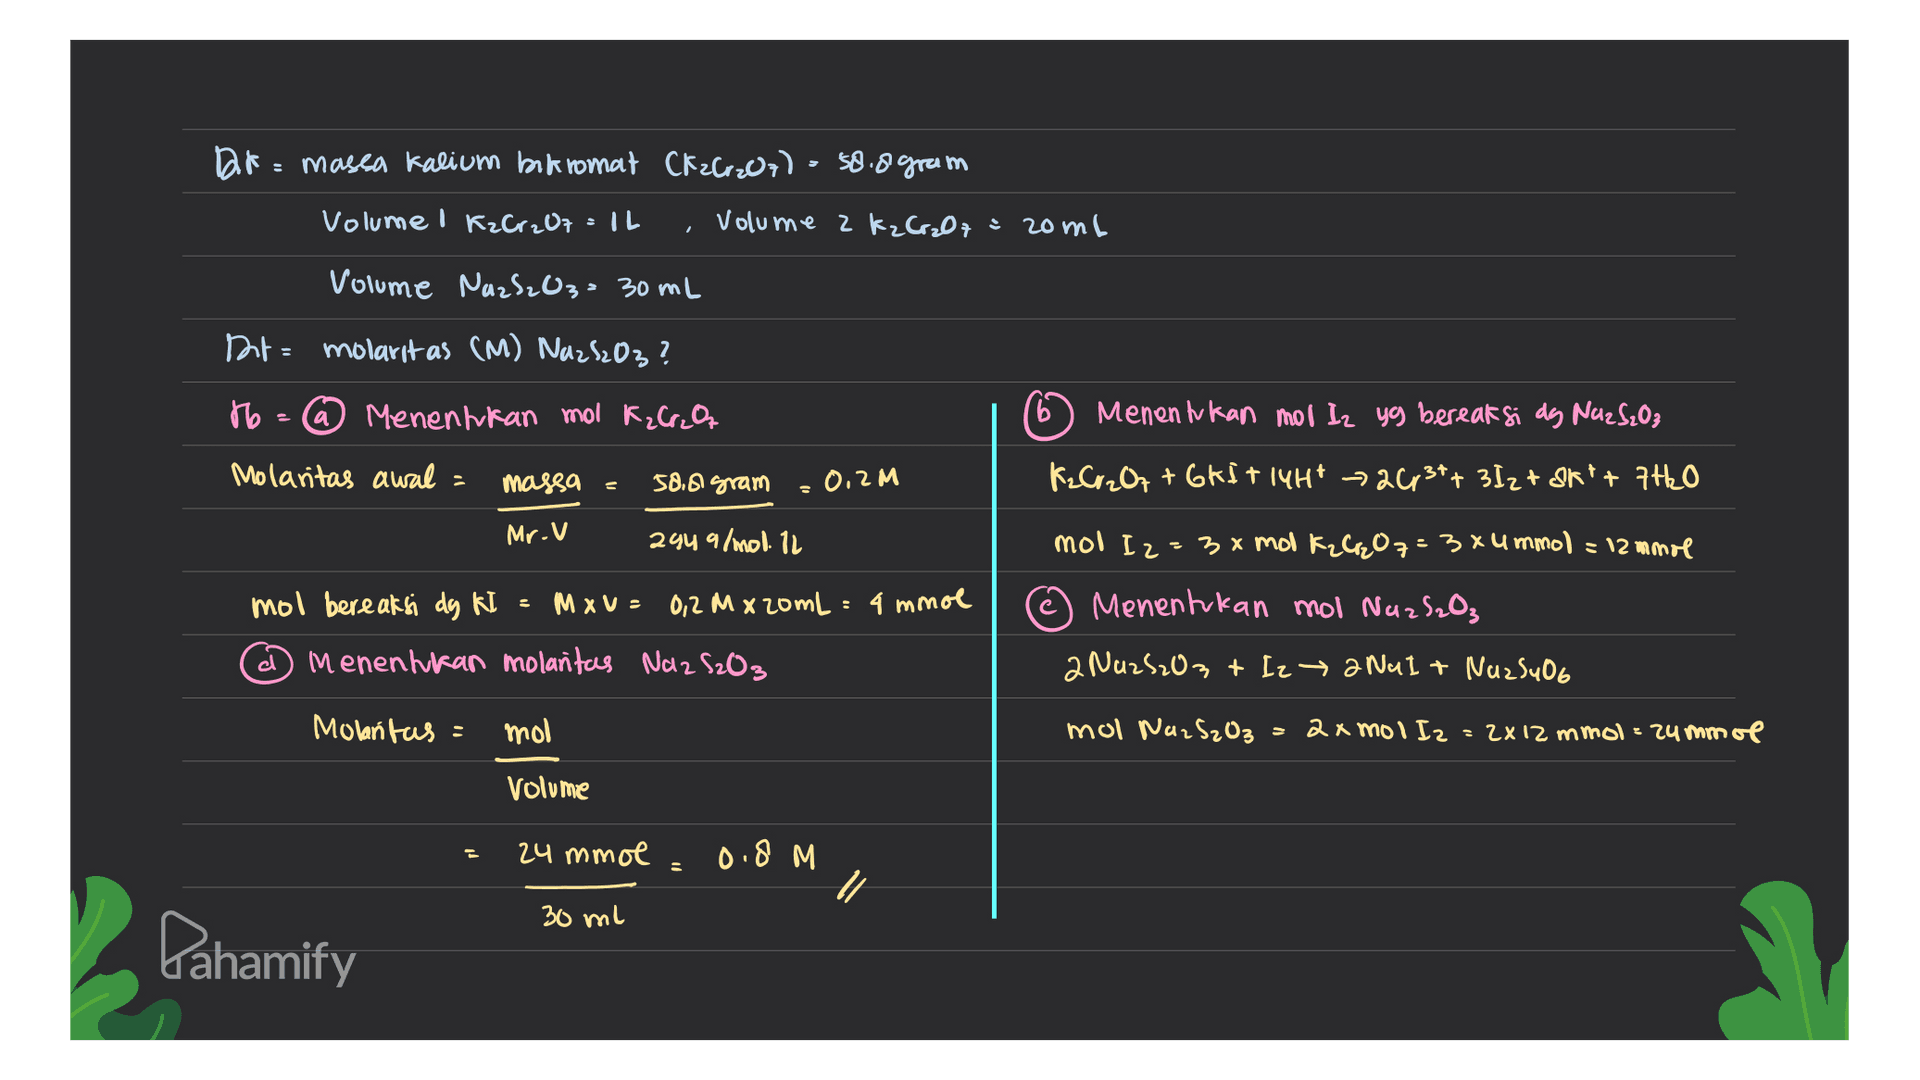 Dik = massa kalium bikromat (K₂Cr₂O₇) = 58.8 gram
Volume 1 K₂Cr₂O₇ = 1 L , Volume 2 K₂Cr₂O₇ = 20 mL
Volume Na₂S₂O₃ = 30 mL
Dit = molaritas (M) Na₂S₂O₃ ?
Jb = (a) Menentukan mol K₂Cr₂O₇
Molaritas awal = massa / Mr.V = 58,8 gram / 294 g/mol. 1L = 0,2 M
mol bereaksi dg KI = M x V = 0,2 M x 20mL = 4 mmol
(d) Menentukan molaritas Na₂S₂O₃
Molaritas = mol / Volume
= 24 mmol / 30 mL = 0.8 M //
(b) Menentukan mol I₂ yg bereaksi dg Na₂S₂O₃
K₂Cr₂O₇ + 6KI + 14H⁺ → 2Cr³⁺ + 3I₂ + 8K⁺ + 7H₂O
mol I₂ = 3 x mol K₂Cr₂O₇ = 3 x 4 mmol = 12 mmol
(c) Menentukan mol Na₂S₂O₃
2Na₂S₂O₃ + I₂ → 2NaI + Na₂S₄O₆
mol Na₂S₂O₃ = 2 x mol I₂ = 2 x 12 mmol = 24 mmol
Pahamify